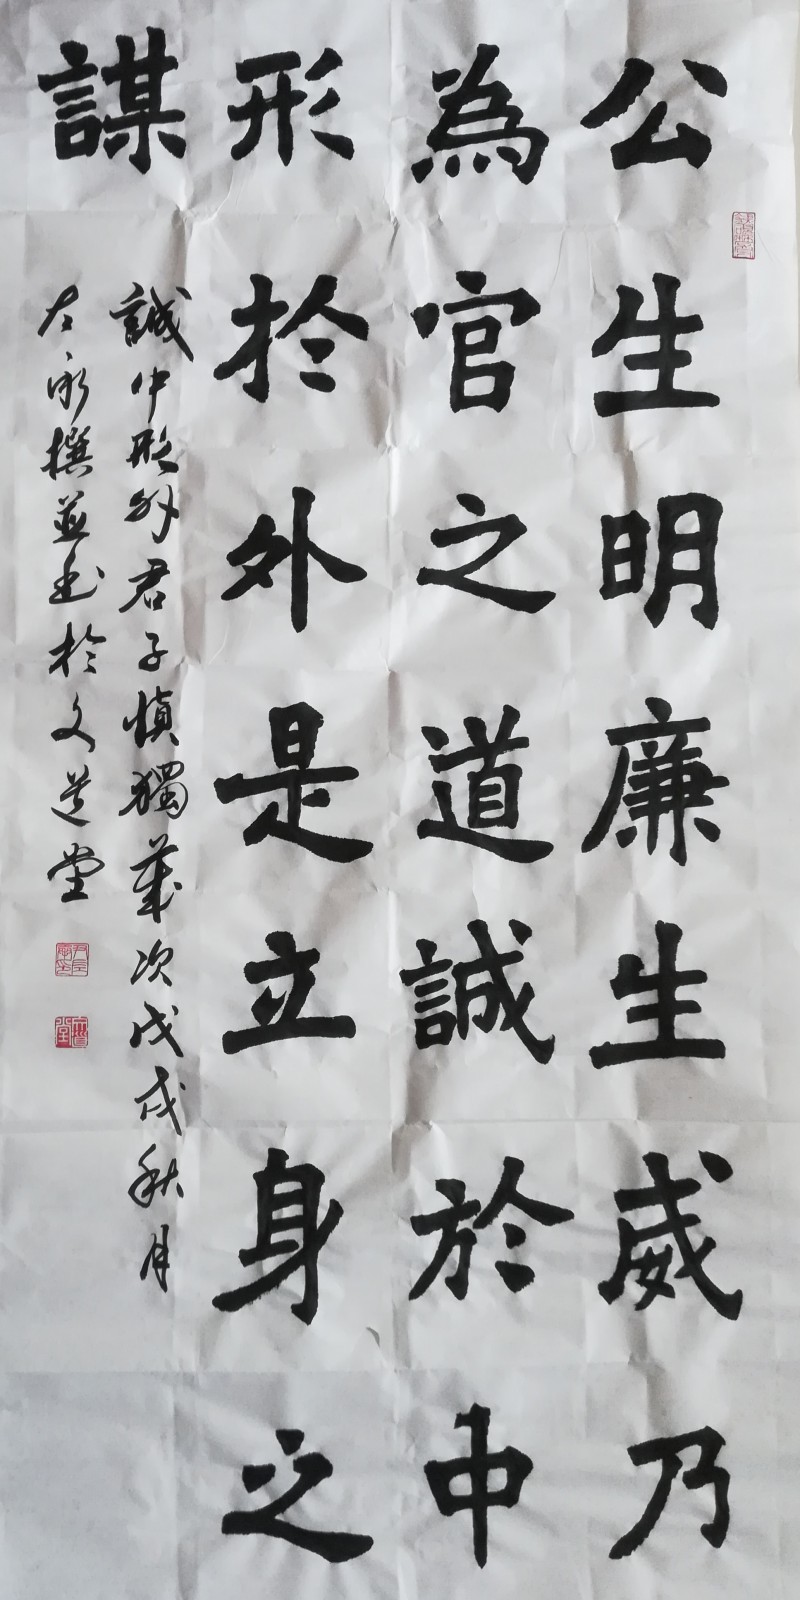 公生明廉生威乃
為官之道誠於中
形於外是立身之
謀
誠中形外君子慎獨歲次戊戌秋月
左永撰並書於文道堂